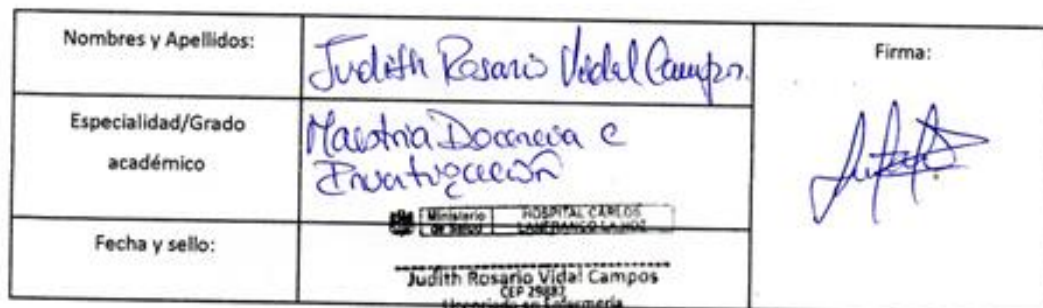 Nombres y Apellidos:
Judith Rosario Vidal Campos.
Firma:
Especialidad/Grado
académico
Maestria Docencia e
Investigación
Ministerio
de Salud
HOSPITAL CARLOS
LANFRANCO LA HOZ
Fecha y sello:
Judith Rosario Vidal Campos
CEP 29887
Licenciada en Enfermería